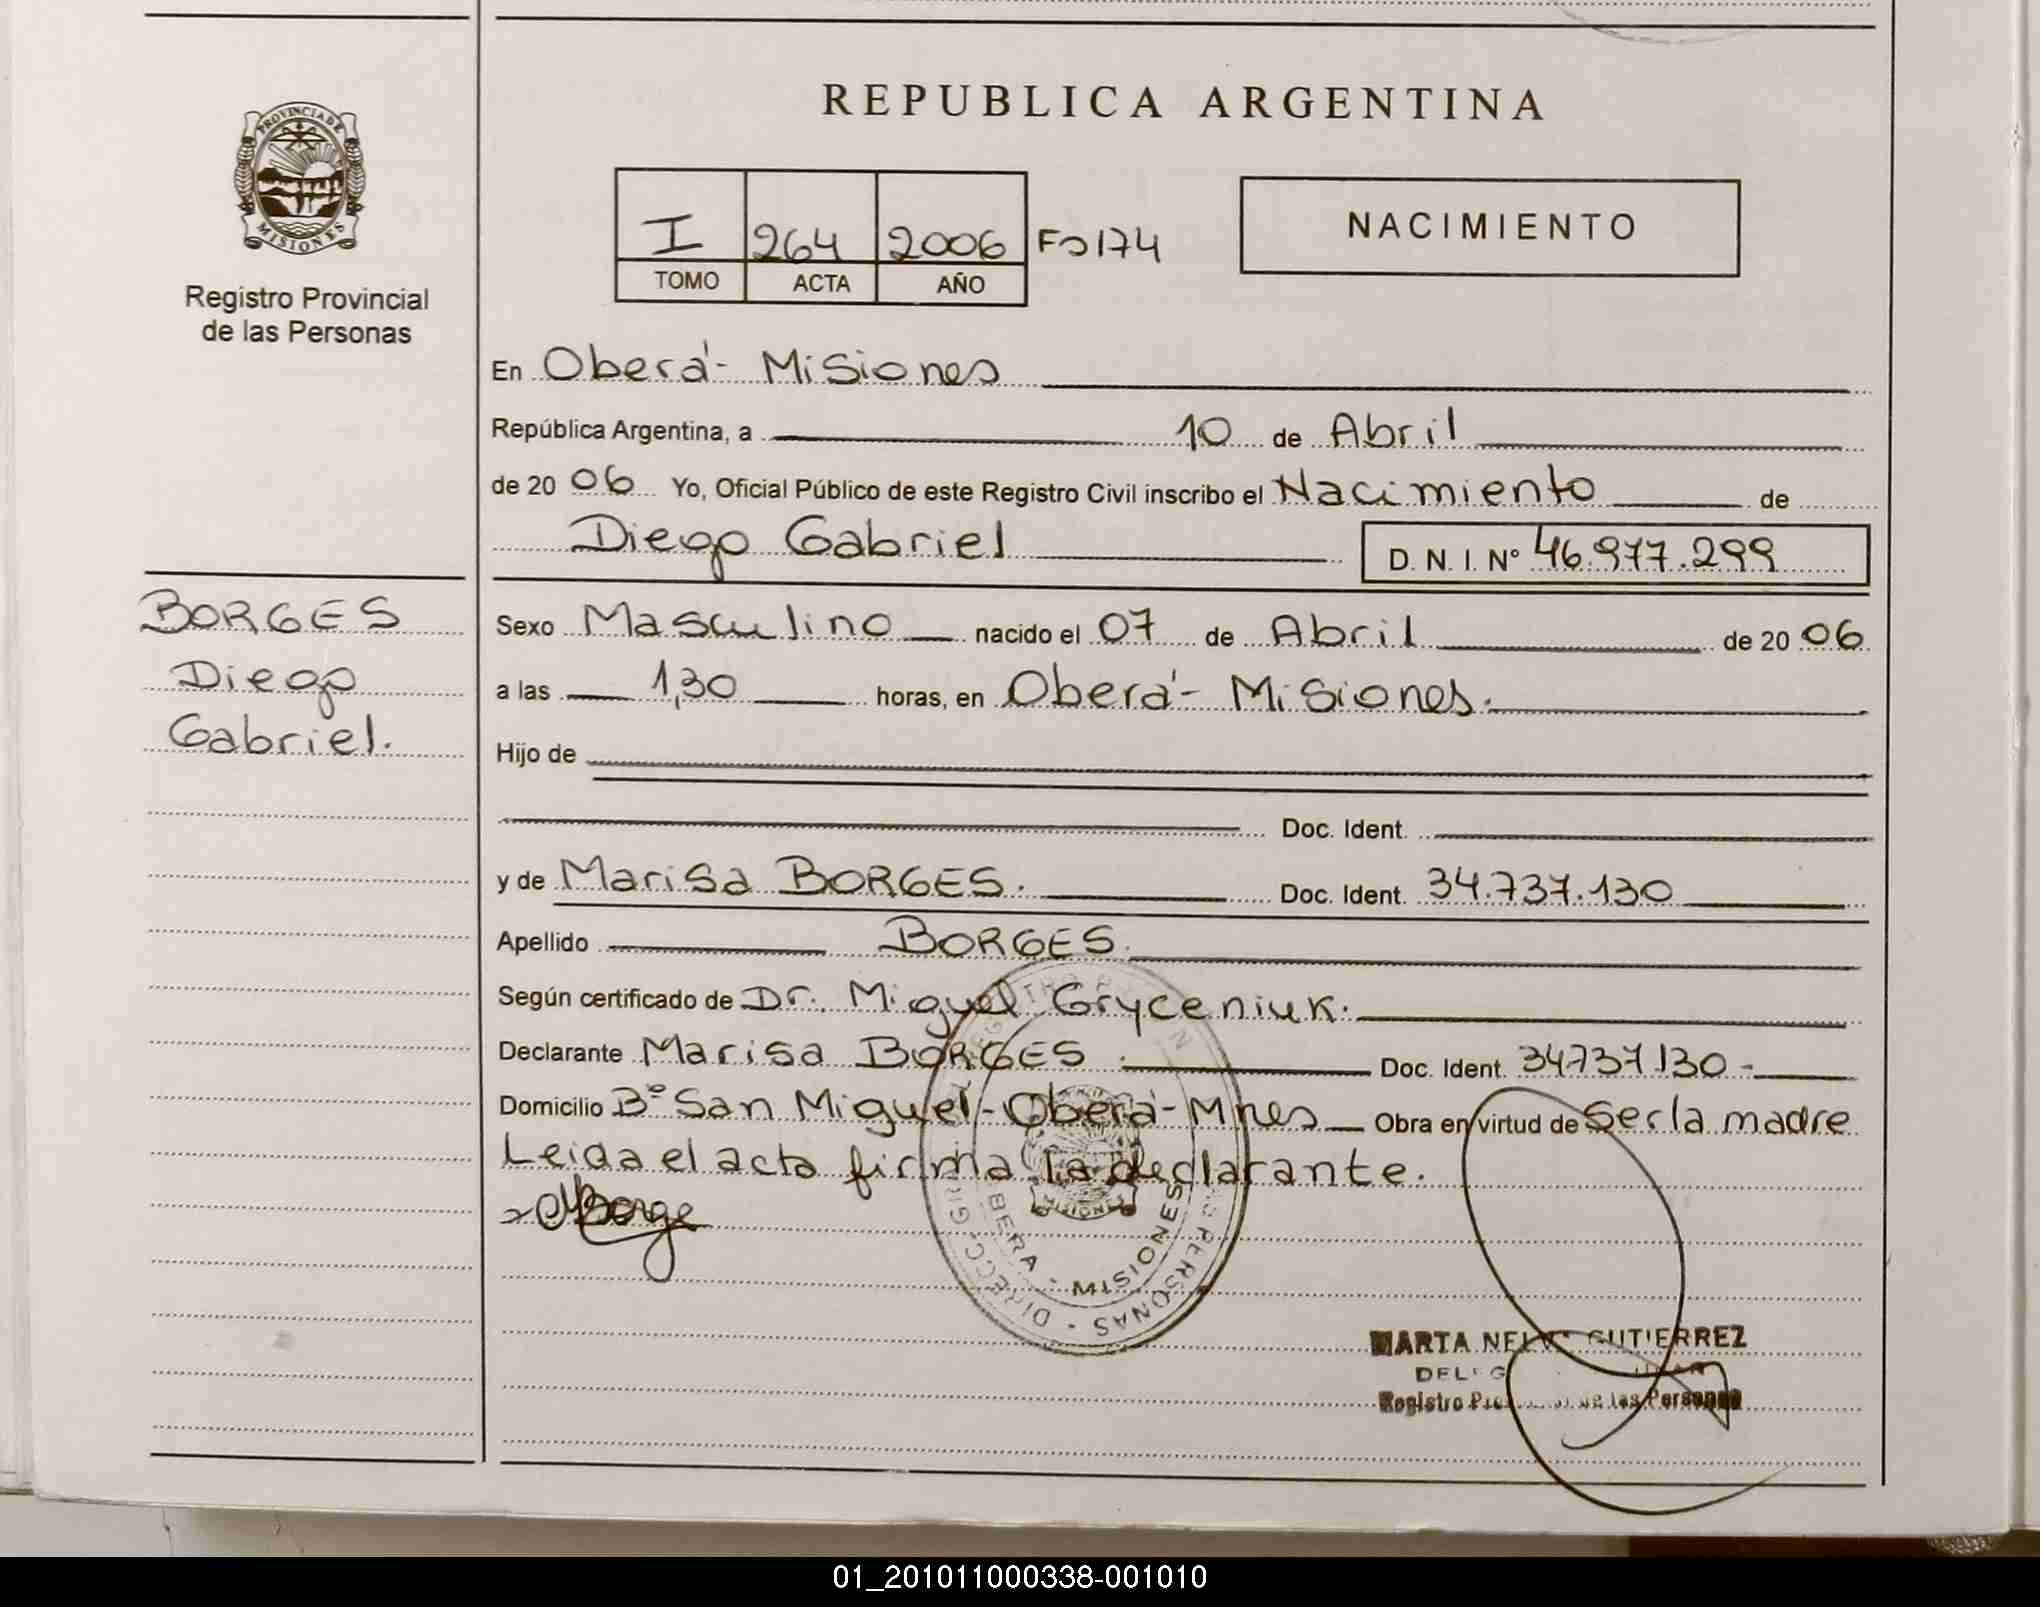 REPUBLICA ARGENTINA
PROVINCIA DE
MISIONES
Registro Provincial
de las Personas
I 264 2006 Fo 174
TOMO ACTA AÑO
NACIMIENTO
En Oberá - Misiones
República Argentina, a 10 de Abril
de 20 06 Yo, Oficial Público de este Registro Civil inscribo el Nacimiento de
Diego Gabriel D. N. I. Nº 46.977.299
BORGES
Diego
Gabriel.
Sexo Masculino nacido el 07 de Abril de 20 06
a las 1,30 horas, en Oberá - Misiones.
Hijo de
Doc. Ident.
y de Marisa BORGES. Doc. Ident. 34.737.130
Apellido BORGES.
Según certificado de Dr. Miguel Gryceniuk.
Declarante Marisa BORGES. Doc. Ident. 34737130-
Domicilio Bº San Miguel - Oberá - Mnes Obra en virtud de Ser la madre
Leida el acta firma la declarante.
MBorge
MISIONES
BERA - MISIONES
PERSONAS
MARTA GUTIERREZ
Registro de las Personas
01_201011000338-001010